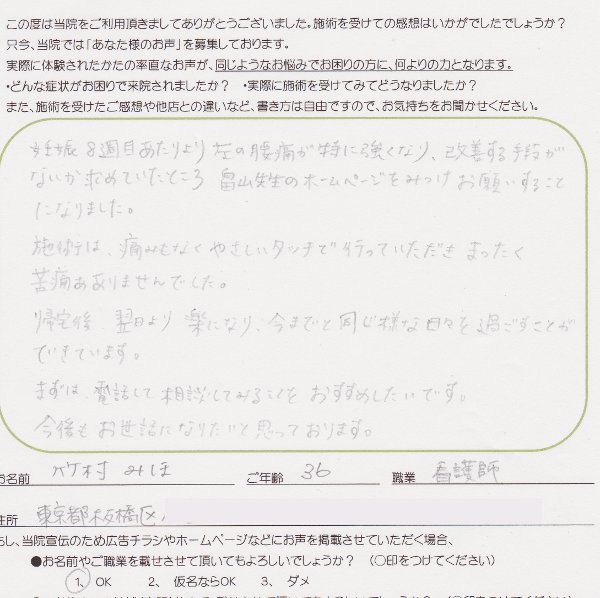 この度は当院をご利用頂きましてありがとうございました。施術を受けての感想はいかがでしたでしょうか?
只今、当院では「あなた様のお声」を募集しております。
実際に体験されたかたの率直なお声が、同じようなお悩みでお困りの方に、何よりの力となります。
・どんな症状がお困りで来院されましたか? ・実際に施術を受けてみてどうなりましたか?
また、施術を受けたご感想や他店との違いなど、書き方は自由ですので、お気持ちをお聞かせください。
妊娠8週目あたりより左の腰痛が特に強くなり、改善する手段が
ないか求めていたところ 畠山先生のホームページをみつけお願いすること
になりました。
施術は、痛みもなくやさしいタッチで行っていただき まったく
苦痛あありませんでした。
帰宅後、翌日より 楽になり、今までと同じ様な日々を過ごすことが
できています。
まずは、電話して相談してみることを おすすめしたいです。
今後も お世話になりたいと思っております。
お名前 竹村 みほ ご年齢 36 職業 看護師
住所 東京都板橋区
もし、当院宣伝のため広告チラシやホームページなどにお声を掲載させていただく場合、
●お名前やご職業を載せさせて頂いてもよろしいでしょうか? (○印をつけてください)
1、OK 2、仮名ならOK 3、ダメ